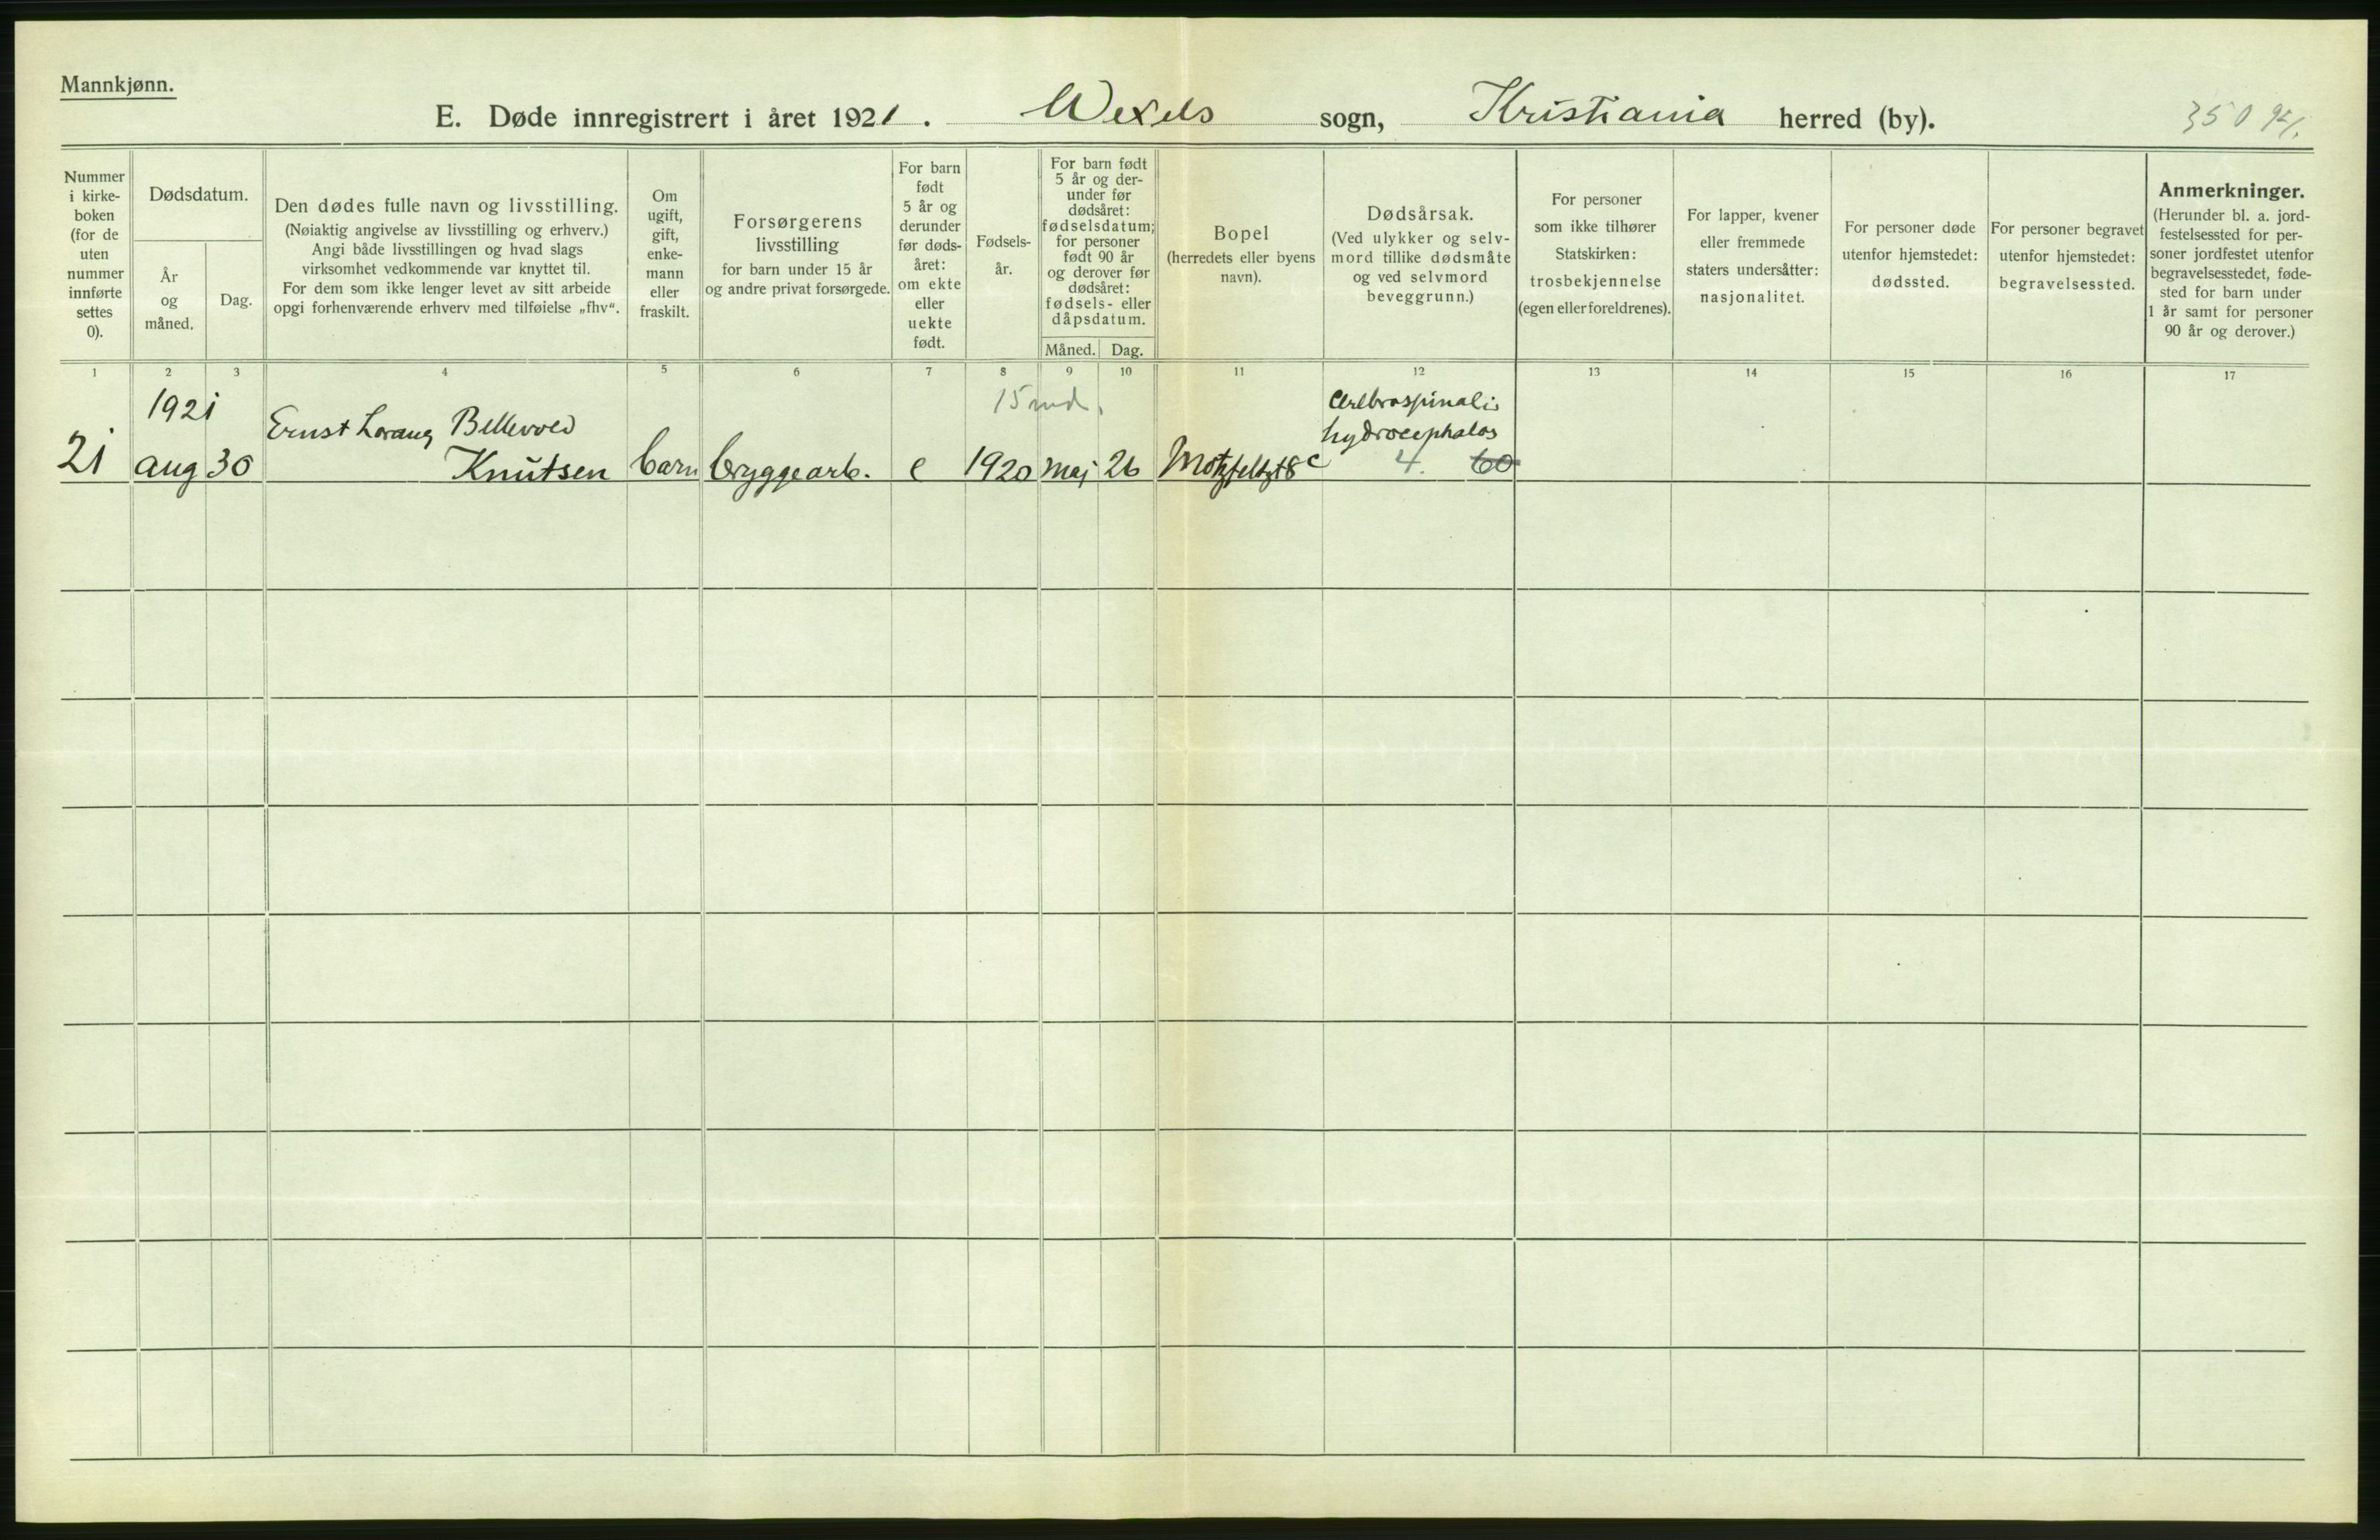 Mannkjønn.
E. Døde innregistrert i året 1921. Wexels sogn, Kristiania herred (by).
Nummer
i kirke-
boken
(for de
uten
nummer
innførte
settes
0).
Dødsdatum.
År
og
måned.
Dag.
Den dødes fulle navn og livsstilling.
(Nøiaktig angivelse av livsstilling og erhverv.)
Angi både livsstillingen og hvad slags
virksomhet vedkommende var knyttet til.
For dem som ikke lenger levet av sitt arbeide
opgi forhenværende erhverv med tilføielse „fhv“.
Om
ugift,
gift,
enke-
mann
eller
fraskilt.
Forsørgerens
livsstilling
for barn under 15 år
og andre privat forsørgede.
For barn
født
5 år og
derunder
før døds-
året:
om ekte
eller
uekte
født.
Fødsels-
år.
For barn født
5 år og der-
under før
dødsåret:
fødselsdatum;
for personer
født 90 år
og derover før
dødsåret:
fødsels- eller
dåpsdatum.
Måned. Dag.
Bopel
(herredets eller byens
navn).
Dødsårsak.
(Ved ulykker og selv-
mord tillike dødsmåte
og ved selvmord
beveggrunn.)
For personer
som ikke tilhører
Statskirken:
trosbekjennelse
(egen eller foreldrenes).
For lapper, kvener
eller fremmede
staters undersåtter:
nasjonalitet.
For personer døde
utenfor hjemstedet:
dødssted.
For personer begravet
utenfor hjemstedet:
begravelsessted.
Anmerkninger.
(Herunder bl. a. jord-
festelsessted for per-
soner jordfestet utenfor
begravelsesstedet, føde-
sted for barn under
1 år samt for personer
90 år og derover.)
1 2 3 4 5 6 7 8 9 10 11 12 13 14 15 16 17
1921 15 md. Cerebrospinalis
Ernst Lorang Bellevold hydrocephalos
21 aug 30 Knutsen barn bryggearb. e 1920 maj 26 Motzfeldtgt 8c 4. 60